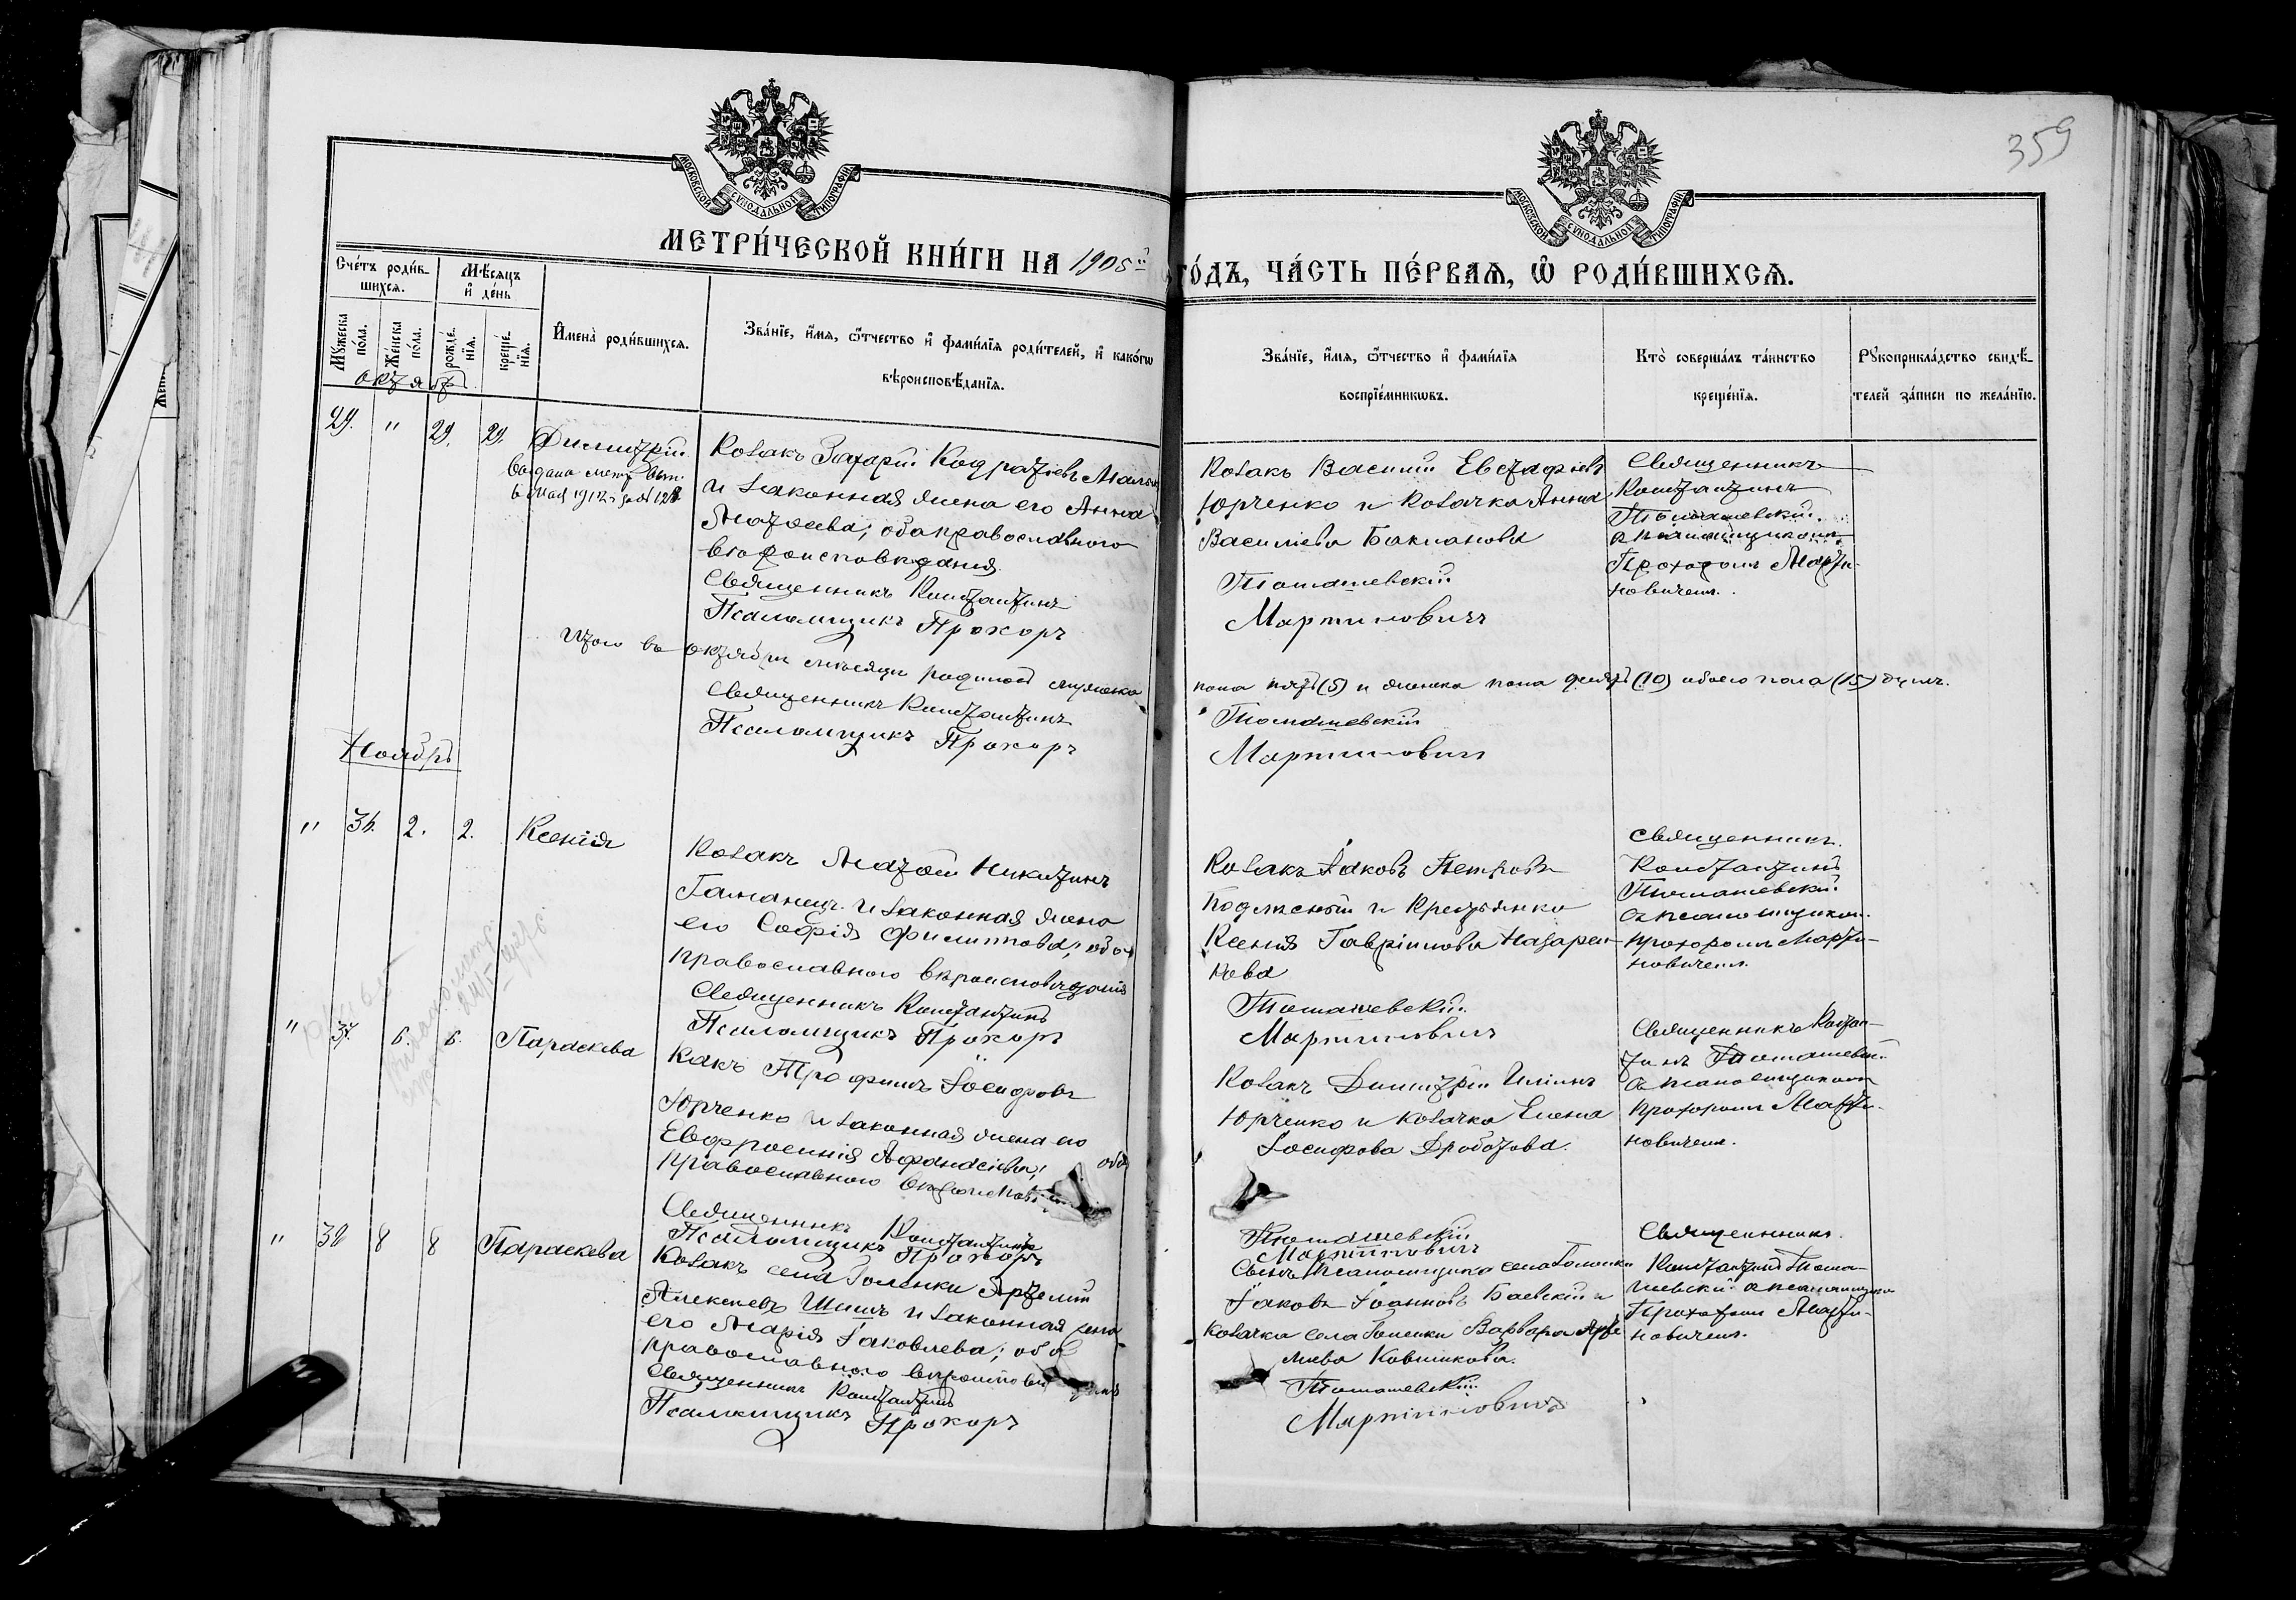 359
МОСКОВСКОЙ СѴНОДАЛЬНОЙ ТИПОГРАФІИ
МОСКОВСКОЙ СѴНОДАЛЬНОЙ ТИПОГРАФІИ
МЕТРИ́ЧЕСКОЙ КНИ́ГИ НА 1905й ГО́ДЪ, ЧА́СТЬ ПЕ́РВАѦ, Ѡ҆ РОДИ́ВШИХСѦ.
Сче́тъ роди́в-
шихсѧ.
Мѣ́сѧцъ
и҆ де́нь
Мꙋ́жеска
по́ла.
Же́нска
по́ла.
рожде́-
нїѧ.
креще́-
нїѧ.
И҆мена̀ роди́вшихсѧ.
Зва́нїе, и҆́мѧ, ѻ҆́тчество и҆ фами́лїѧ роди́телей, и҆ како́гѡ
вѣроисповѣ́данїѧ.
Зва́нїе, и҆́мѧ, ѻ҆́тчество и҆ фами́лїѧ
воспрїе́мникѡвъ.
Кто̀ соверша́лъ та́инство
креще́нїѧ.
Рꙋкоприкла́дство свидѣ́-
телей за́писи по жела́нїю.
октяб.
29. " 29. 29. Димитрій
Выдана метр. вып.
6 мая 1912 г. за № 128
Козакъ Захарій Кодратіевъ
и законная жена его Анна
Матѳеева; оба православного
вѣроисповѣданія.
Священникъ Константинъ
Псаломщикъ Прохоръ
Козакъ Василій Евстафіевъ
Юрченко и козачка Анна
Василіева Бакланова
Томашевскій
Мартиновичъ
Священникъ
Константинъ
Томашевскій
съ псаломщикомъ
Прохоромъ Марти-
новичемъ.
Итого въ октябрѣ мѣсяцѣ родилось мужеска
пола пять (5) и женска пола десять (10) обоего пола (15) душъ.
Священникъ Константинъ
Псаломщикъ Прохоръ
Томашевскій
Мартиновичъ
Ноябрь
" 36. 2. 2. Ксенія
Козакъ Матѳей Никитинъ
Гаманецъ и законная жена
его Софія Филиппова; оба
православного вѣроисповѣданія
Священникъ Константинъ
Псаломщикъ Прохоръ
Козакъ Іаковъ Петровъ
и крестьянка
Ксенія Гавріилова Назарен-
кова
Томашевскій
Мартиновичъ
Священникъ
Константинъ
Томашевскій
съ псаломщикомъ
Прохоромъ Марти-
новичемъ.
" 37. 6. 6. Параскева
Какъ Трофимъ Іосифовъ
Юрченко и законная жена его
Евфросинія Афанасіева; оба
православного
Священникъ Константинъ
Псаломщикъ Прохоръ
Козакъ Димитрій Иліинъ
Юрченко и козачка Елена
Іосифова Дроботова.
Томашевскій
Мартиновичъ
Священникъ Констан-
тинъ Томашевскій
съ псаломщикомъ
Прохоромъ Марти-
новичемъ.
" 38 8 8 Параскева
Козакъ села Голенки Артемій
Алексѣевъ Шишъ и законная жена
его Марія Іаковлева; оба
православного
Священникъ Константинъ
Псаломщикъ Прохоръ
Сынъ псаломщика села Голенки
Іаковъ Іоанновъ Баевскій и
козачка села Голенки Варвара Арте
міева Ковшикова.
Томашевскій
Мартиновичъ
Священникъ
Константинъ Тома-
шевскій съ псаломщикомъ
Прохоромъ Марти-
новичемъ.